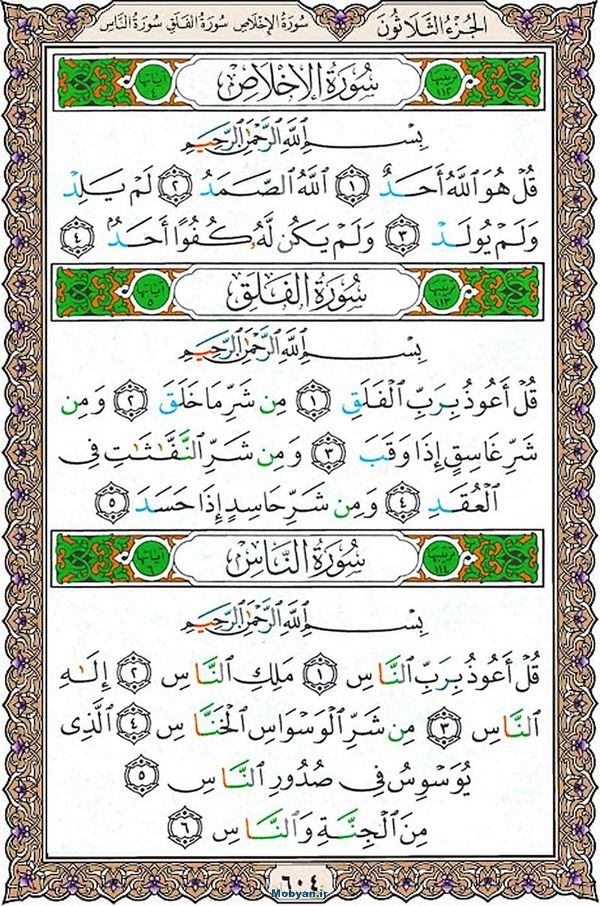 الجزء الثلاثون سورة الإخلاص سورة الفلق سورة الناس
ترتيبها ١١٢ سُورَةُ الإِخْلَاصِ آياتها ٤
بِسْمِ ٱللَّهِ ٱلرَّحْمَٰنِ ٱلرَّحِيمِ
قُلْ هُوَ ٱللَّهُ أَحَدٌ ١ ٱللَّهُ ٱلصَّمَدُ ٢ لَمْ يَلِدْ
وَلَمْ يُولَدْ ٣ وَلَمْ يَكُن لَّهُۥ كُفُوًا أَحَدٌۢ ٤
ترتيبها ١١٣ سُورَةُ الفَلَقِ آياتها ٥
بِسْمِ ٱللَّهِ ٱلرَّحْمَٰنِ ٱلرَّحِيمِ
قُلْ أَعُوذُ بِرَبِّ ٱلْفَلَقِ ١ مِن شَرِّ مَا خَلَقَ ٢ وَمِن
شَرِّ غَاسِقٍ إِذَا وَقَبَ ٣ وَمِن شَرِّ ٱلنَّفَّٰثَٰتِ فِى
ٱلْعُقَدِ ٤ وَمِن شَرِّ حَاسِدٍ إِذَا حَسَدَ ٥
ترتيبها ١١٤ سُورَةُ النَّاسِ آياتها ٦
بِسْمِ ٱللَّهِ ٱلرَّحْمَٰنِ ٱلرَّحِيمِ
قُلْ أَعُوذُ بِرَبِّ ٱلنَّاسِ ١ مَلِكِ ٱلنَّاسِ ٢ إِلَٰهِ
ٱلنَّاسِ ٣ مِن شَرِّ ٱلْوَسْوَاسِ ٱلْخَنَّاسِ ٤ ٱلَّذِى
يُوَسْوِسُ فِى صُدُورِ ٱلنَّاسِ ٥
مِنَ ٱلْجِنَّةِ وَٱلنَّاسِ ٦
٦٠٤
Mobyan.ir